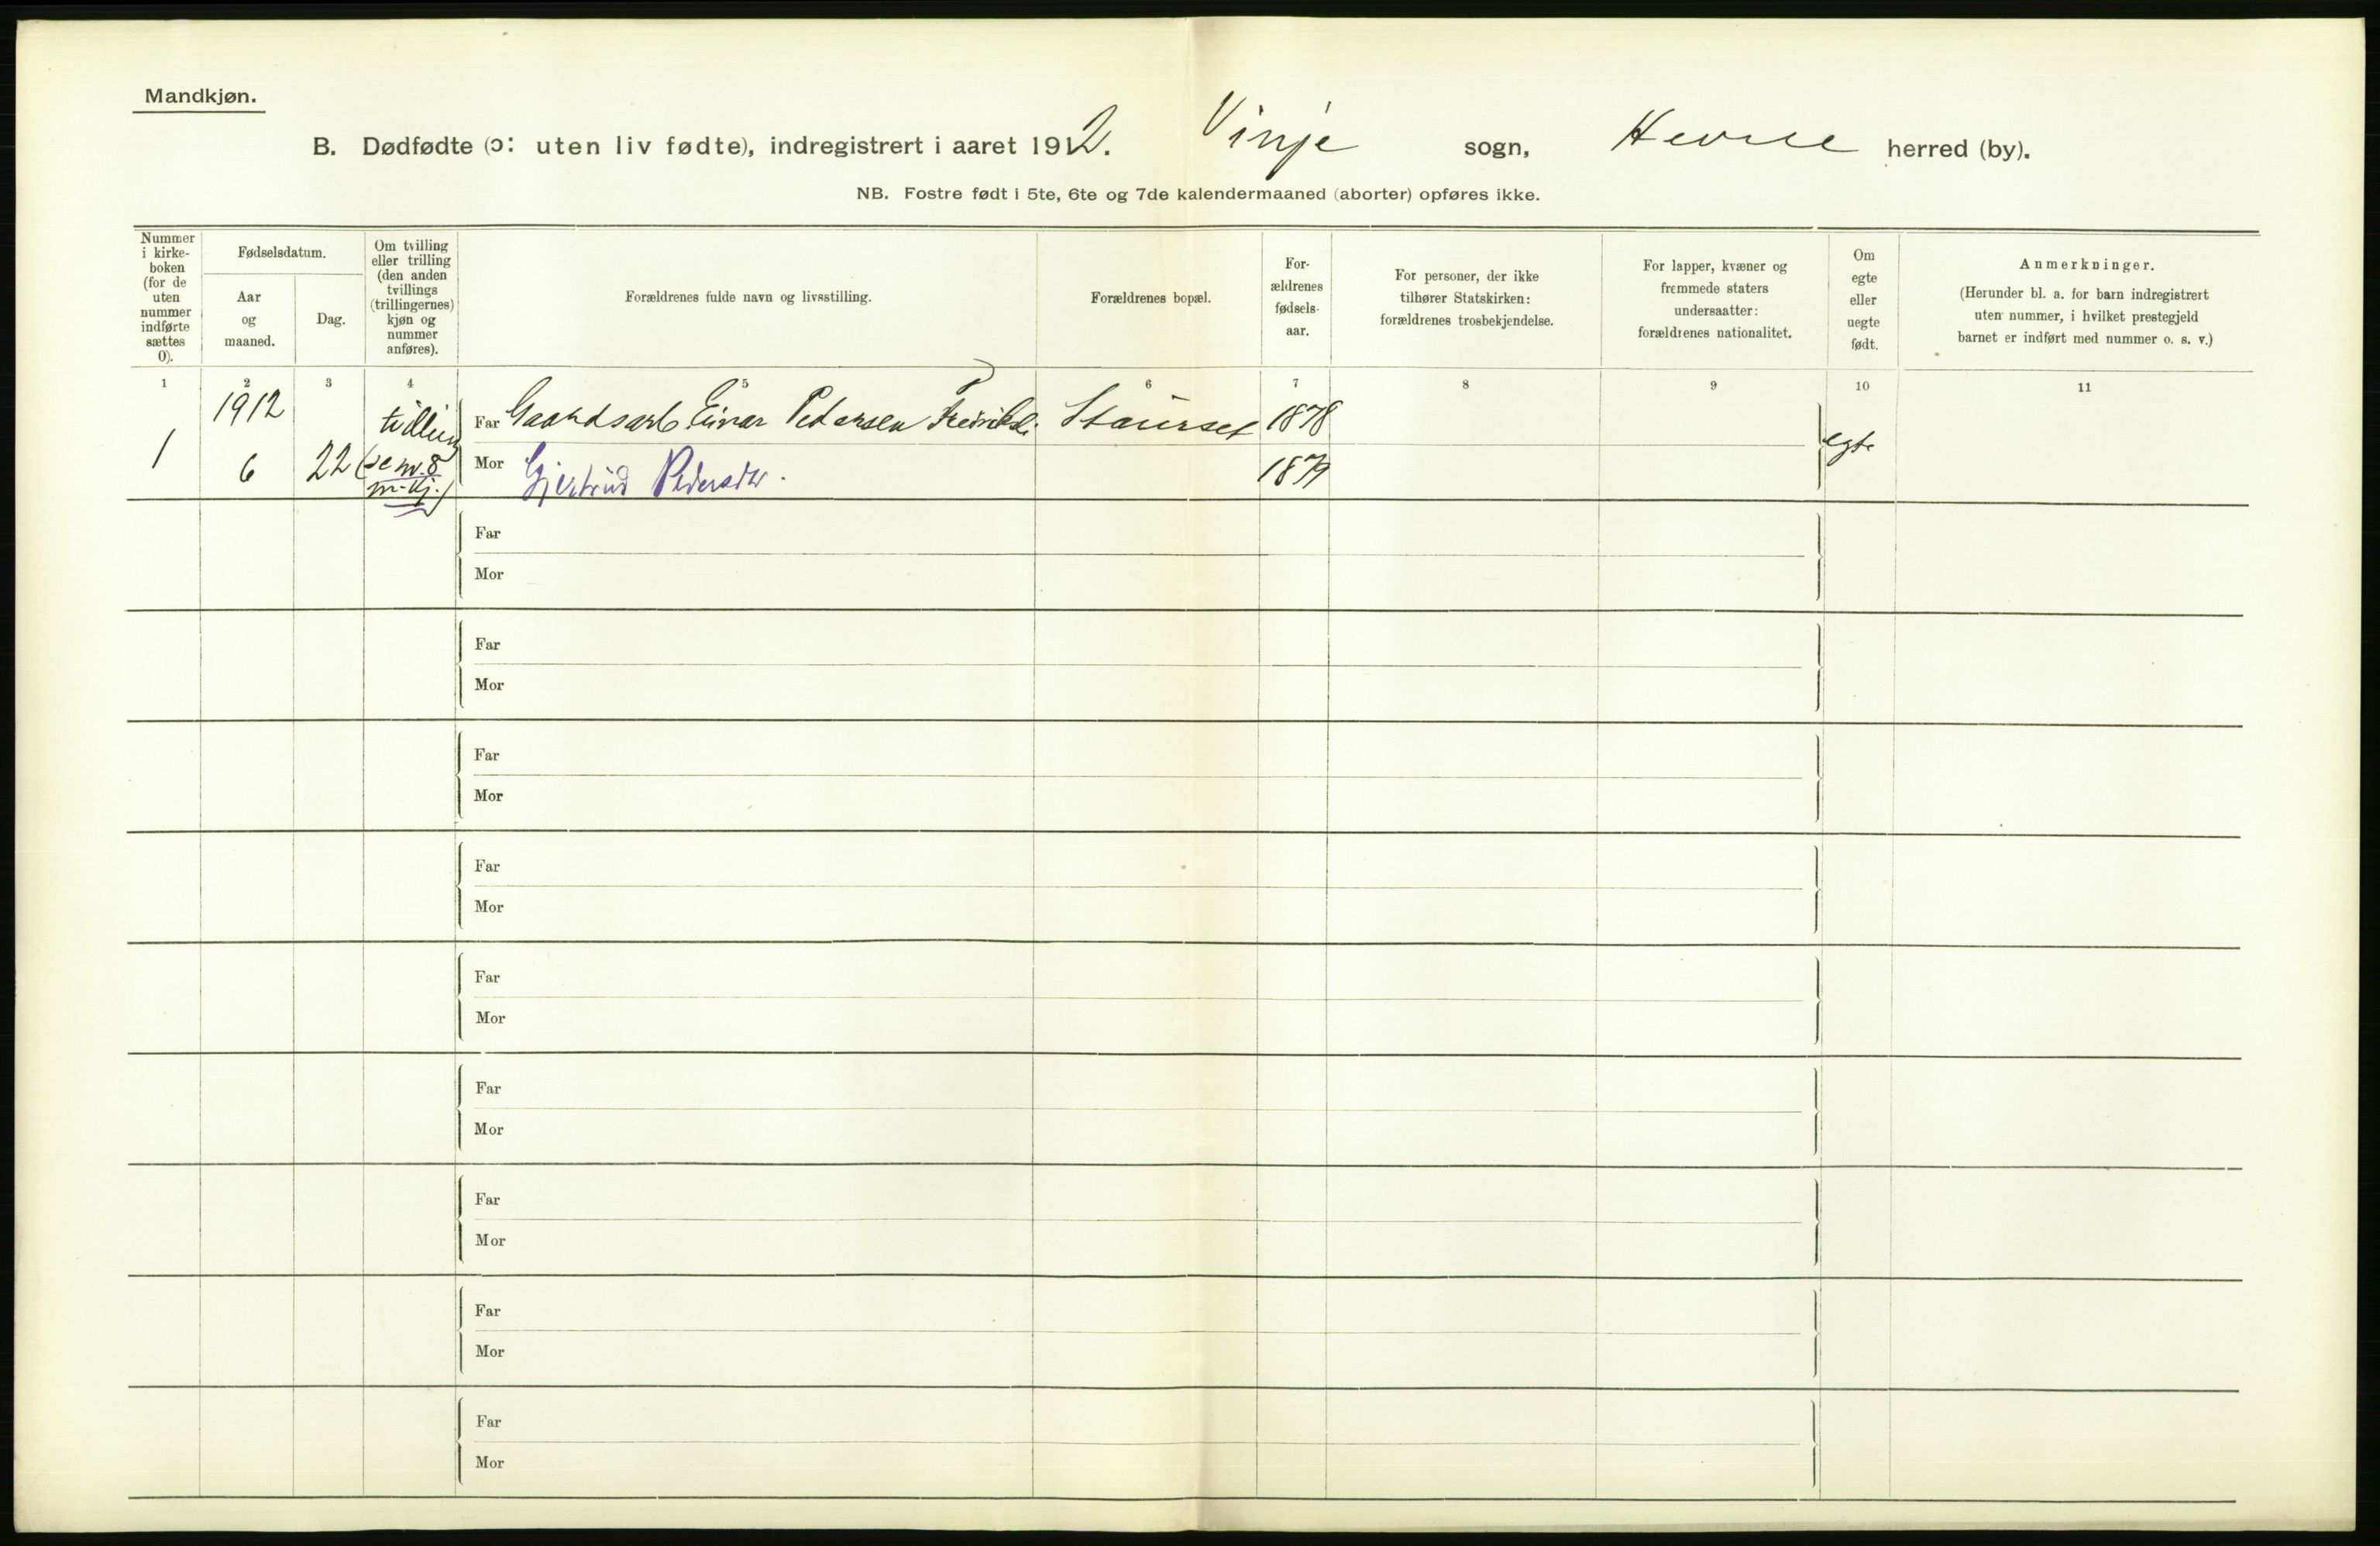 Mandkjøn.
B. Dødfødte (ɔ: uten liv fødte), indregistrert i aaret 1912. Vinje sogn, Hevne herred (by).
NB. Fostre født i 5te, 6te og 7de kalendermaaned (aborter) opføres ikke.
Nummer
i kirke-
boken
(for de
uten
nummer
indførte
sættes
0).
Fødselsdatum.
Aar
og
maaned.
Dag.
Om tvilling
eller trilling
(den anden
tvillings
(trillingernes)
kjøn og
nummer
anføres).
Forældrenes fulde navn og livsstilling.
Forældrenes bopæl.
For-
ældrenes
fødsels-
aar.
For personer, der ikke
tilhører Statskirken:
forældrenes trosbekjendelse.
For lapper, kvæner og
fremmede staters
undersaatter:
forældrenes nationalitet.
Om
egte
eller
uegte
født.
Anmerkninger.
(Herunder bl. a. for barn indregistrert
uten nummer, i hvilket prestegjeld
barnet er indført med nummer o. s. v.)
1 2 3 4 5 6 7 8 9 10 11
1912 Far Gaardsarb. Einar Pedersen Staurset 1878
1 6 22 (se nr. 8 Mor Gjertrud Pedersdtr. 1879 egte
m-kj.)
Far
Mor
Far
Mor
Far
Mor
Far
Mor
Far
Mor
Far
Mor
Far
Mor
Far
Mor
Far
Mor